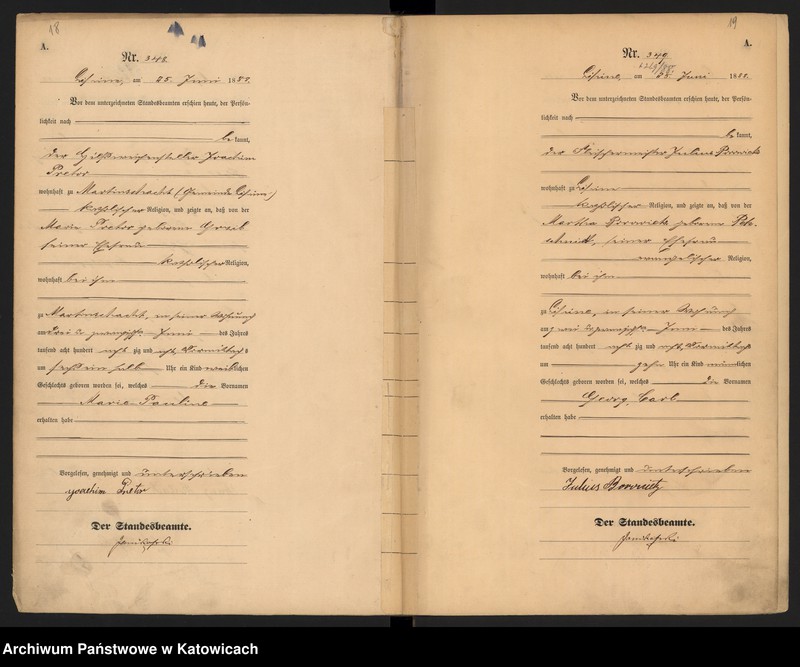 18
A.
Nr. 348.
am 25. Juni 188
Vor dem unterzeichneten Standesbeamten erschien heute, der Persön-
lichkeit nach
be kannt,
der Joachim
Pretor
wohnhaft zu (Gemeinde
katholischer Religion, und zeigte an, daß von der
Marie Pretor geborene
seiner Ehefrau
katholischer Religion,
wohnhaft bei ihm
zu in seiner Wohnung
am drei u. zwanzigsten Juni des Jahres
tausend acht hundert acht zig und acht, Vormittags
um sechs ein halb Uhr ein Kind weiblichen
Geschlechts geboren worden sei, welches die Vornamen
Marie Pauline
erhalten habe
Vorgelesen, genehmigt und unterschrieben
Joachim Pretor
Der Standesbeamte.
19
A.
Nr. 349.
am 25. Juni 1888.
Vor dem unterzeichneten Standesbeamten erschien heute, der Persön-
lichkeit nach
be kannt,
der Fleischermeister Julius
wohnhaft zu
katholischer Religion, und zeigte an, daß von der
Martha geborene
seiner Ehefrau
evangelischer Religion,
wohnhaft bei ihm
zu in seiner Wohnung
am zwei u. zwanzigsten Juni des Jahres
tausend acht hundert acht zig und acht, Vormittags
um zehn Uhr ein Kind männlichen
Geschlechts geboren worden sei, welches die Vornamen
Georg, Carl
erhalten habe
Vorgelesen, genehmigt und unterschrieben
Julius
Der Standesbeamte.
Archiwum Państwowe w Katowicach